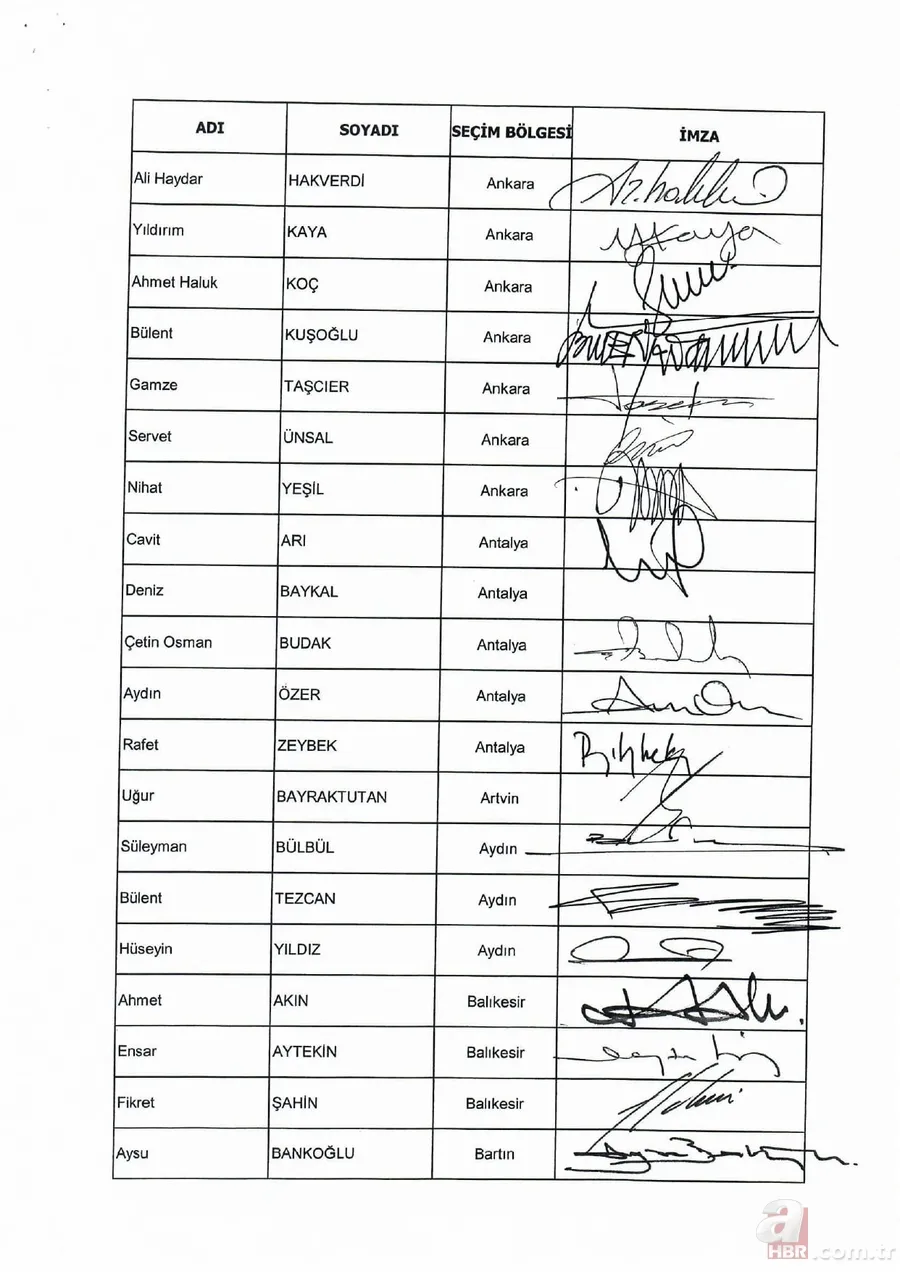 ADI SOYADI SEÇİM BÖLGESİ İMZA
Ali Haydar HAKVERDİ Ankara
Yıldırım KAYA Ankara
Ahmet Haluk KOÇ Ankara
Bülent KUŞOĞLU Ankara
Gamze TAŞCIER Ankara
Servet ÜNSAL Ankara
Nihat YEŞİL Ankara
Cavit ARI Antalya
Deniz BAYKAL Antalya
Çetin Osman BUDAK Antalya
Aydın ÖZER Antalya
Rafet ZEYBEK Antalya
Uğur BAYRAKTUTAN Artvin
Süleyman BÜLBÜL Aydın
Bülent TEZCAN Aydın
Hüseyin YILDIZ Aydın
Ahmet AKIN Balıkesir
Ensar AYTEKİN Balıkesir
Fikret ŞAHİN Balıkesir
Aysu BANKOĞLU Bartın
a
HBR.com.tr